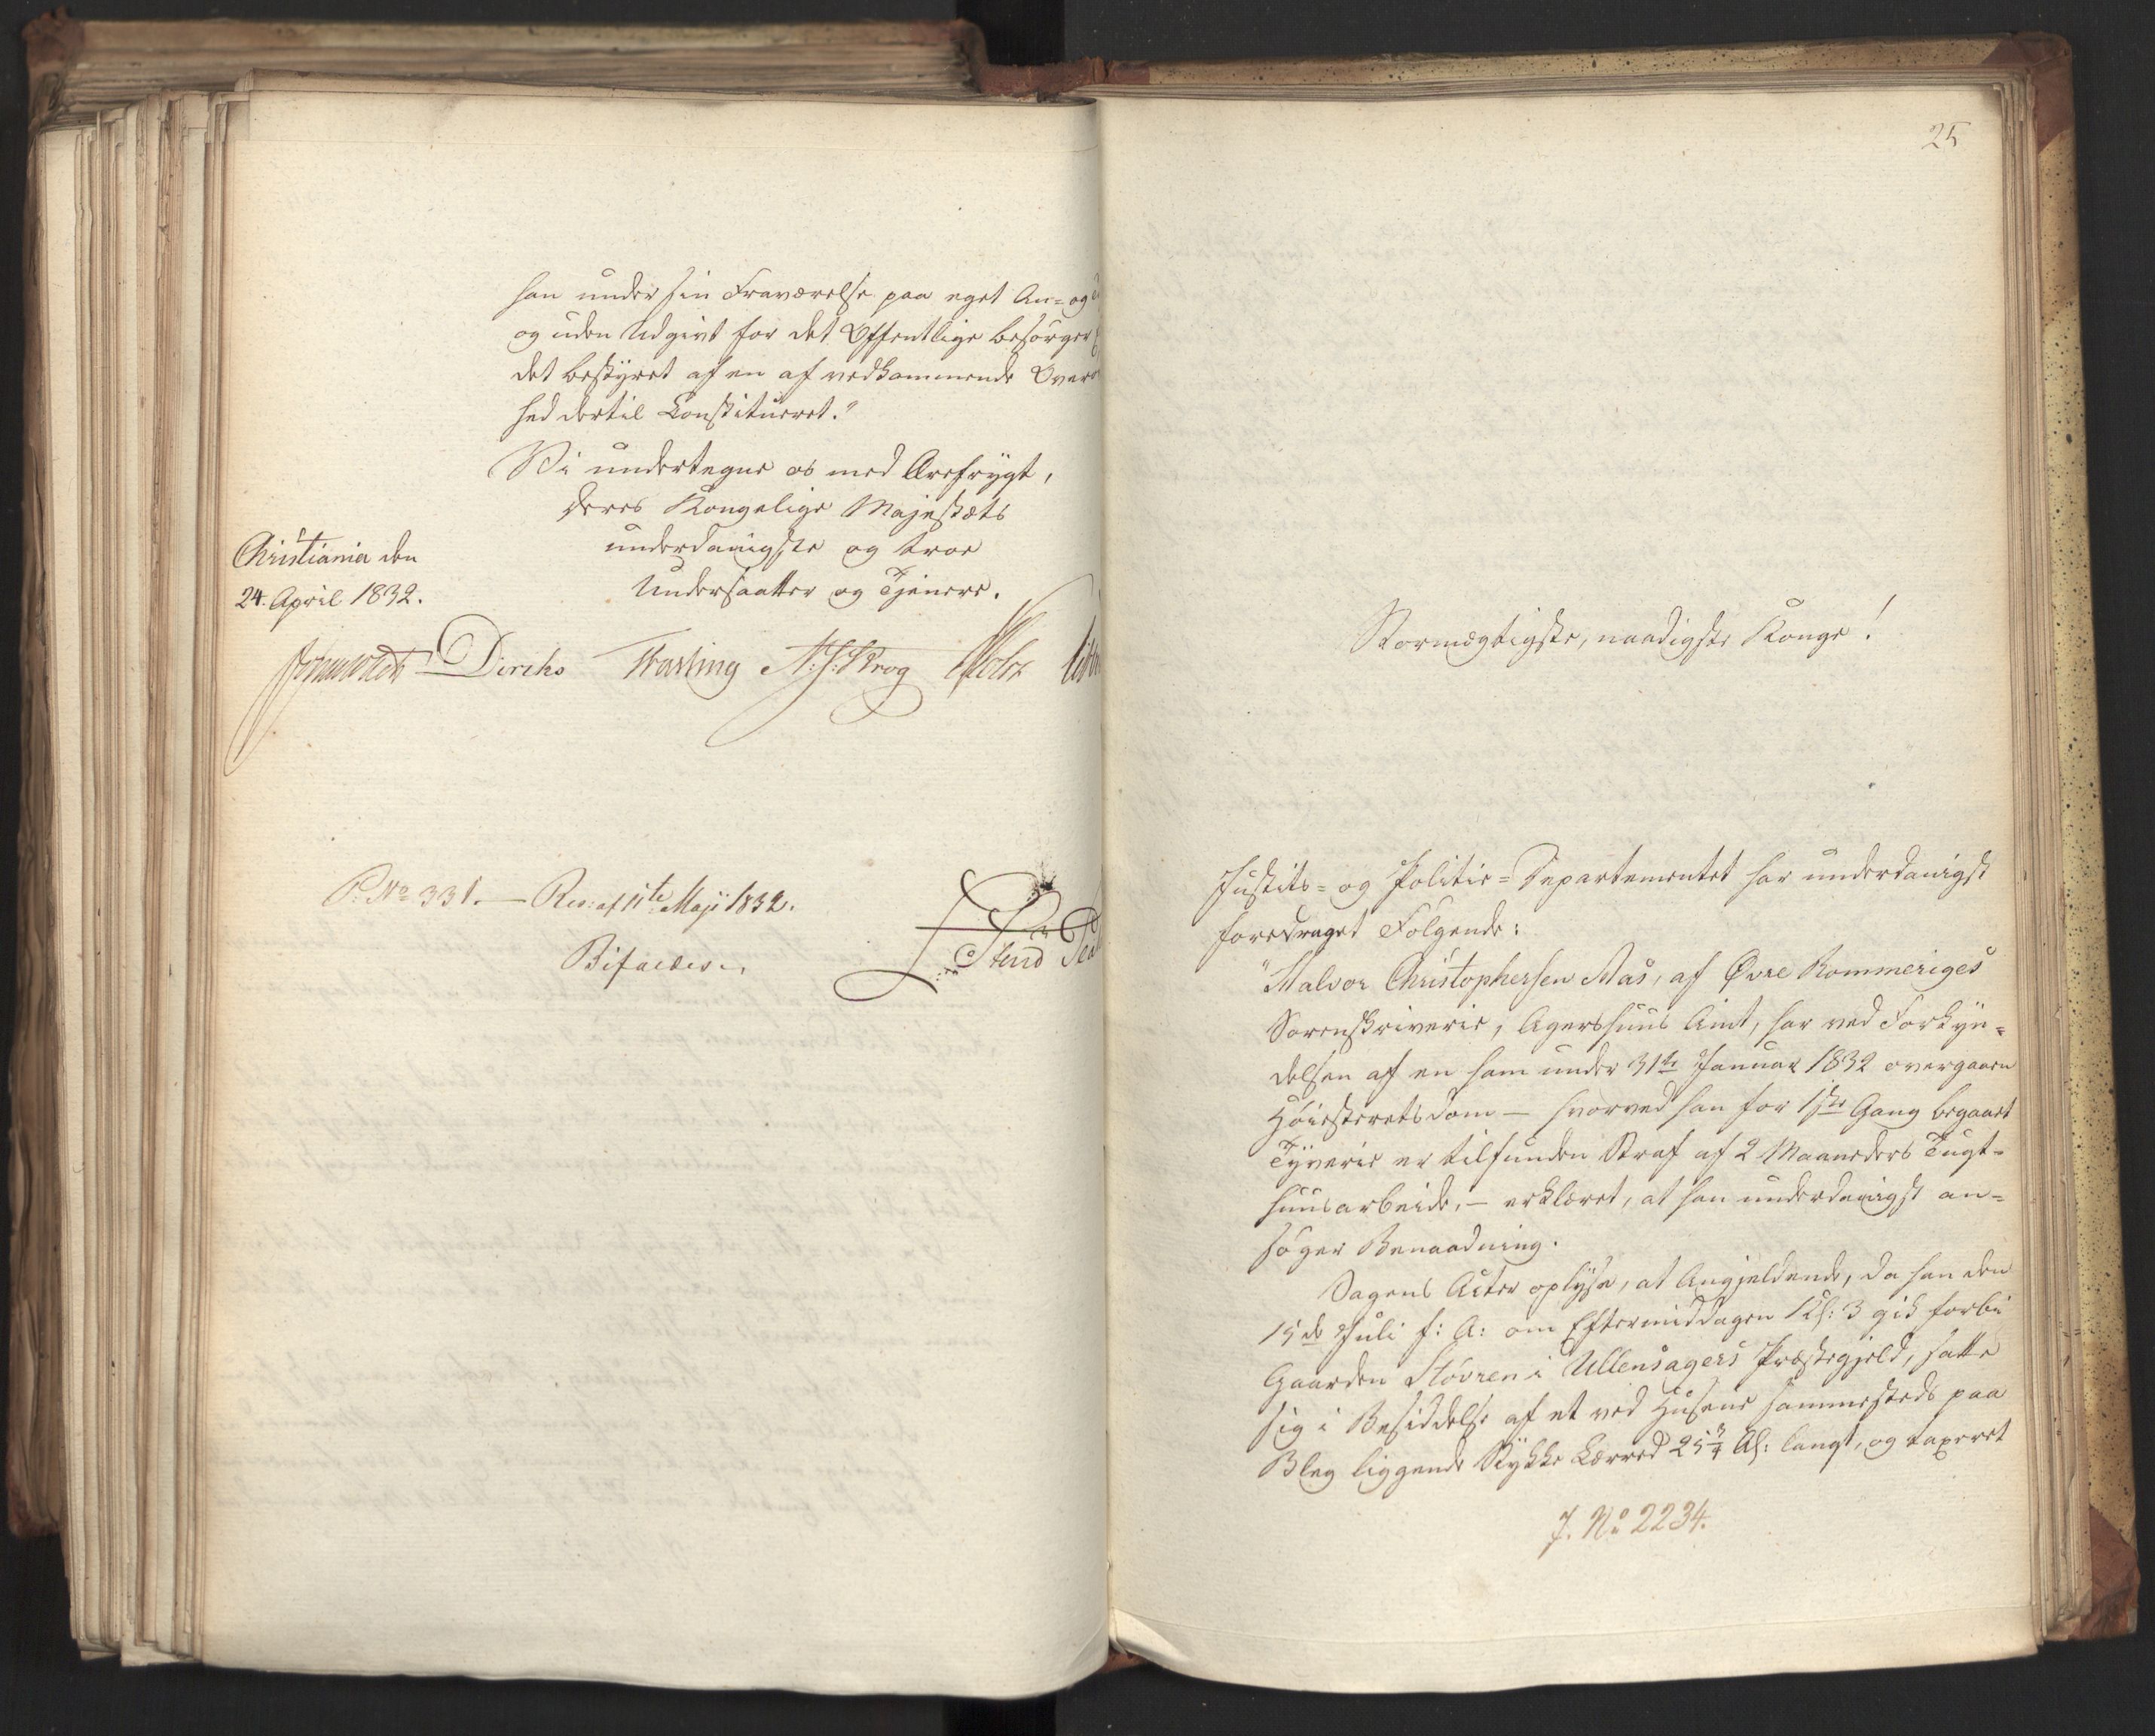 han under sin Fraværelse paa eget An- og
og uden Udgivt for det Offentlige besørger
det bestyret af en af vedkommende Øvrig-
hed dertil Constitueret."
Vi undertegne os med Ærefrygt,
Deres Kongelige Majestæts
underdanigste og troe
Undersaatter og Tjenere.
Christiania den
24. April 1832.
Diriks Fasting N: J: Krog Holst
P. No 331. — Res: af 11te Maji 1832.
Bifaldes.
25
Stormægtigste, naadigste Konge!
Justits- og Politie-Departementet har underdanigst
foredraget Følgende:
"Halvor Christophersen Aas, af Øvre Rommeriges
Sorenskriverie, Agershuus Amt, har ved Forkyn-
delsen af en ham under 31te Januar 1832 overgaaen
Høiesteretsdom — hvorved han for 1ste Gang begaaet
Tyverie er tilfunden Straf af 2 Maaneders Tugt-
huusarbeide, — erklæret, at han underdanigst an-
søger Benaadning.
Sagens Acter oplyse, at Angjeldende, da han den
15de Juli f: A: om Eftermiddagen Kl: 3 gik forbi
Gaarden Støvren i Ullensagers Præstegjeld, satte
sig i Besiddelse af et ved Husene sammesteds paa
Bleg liggende Stykke Lærred 25 3/4 Al: langt, og taxeret
J. No 2234.